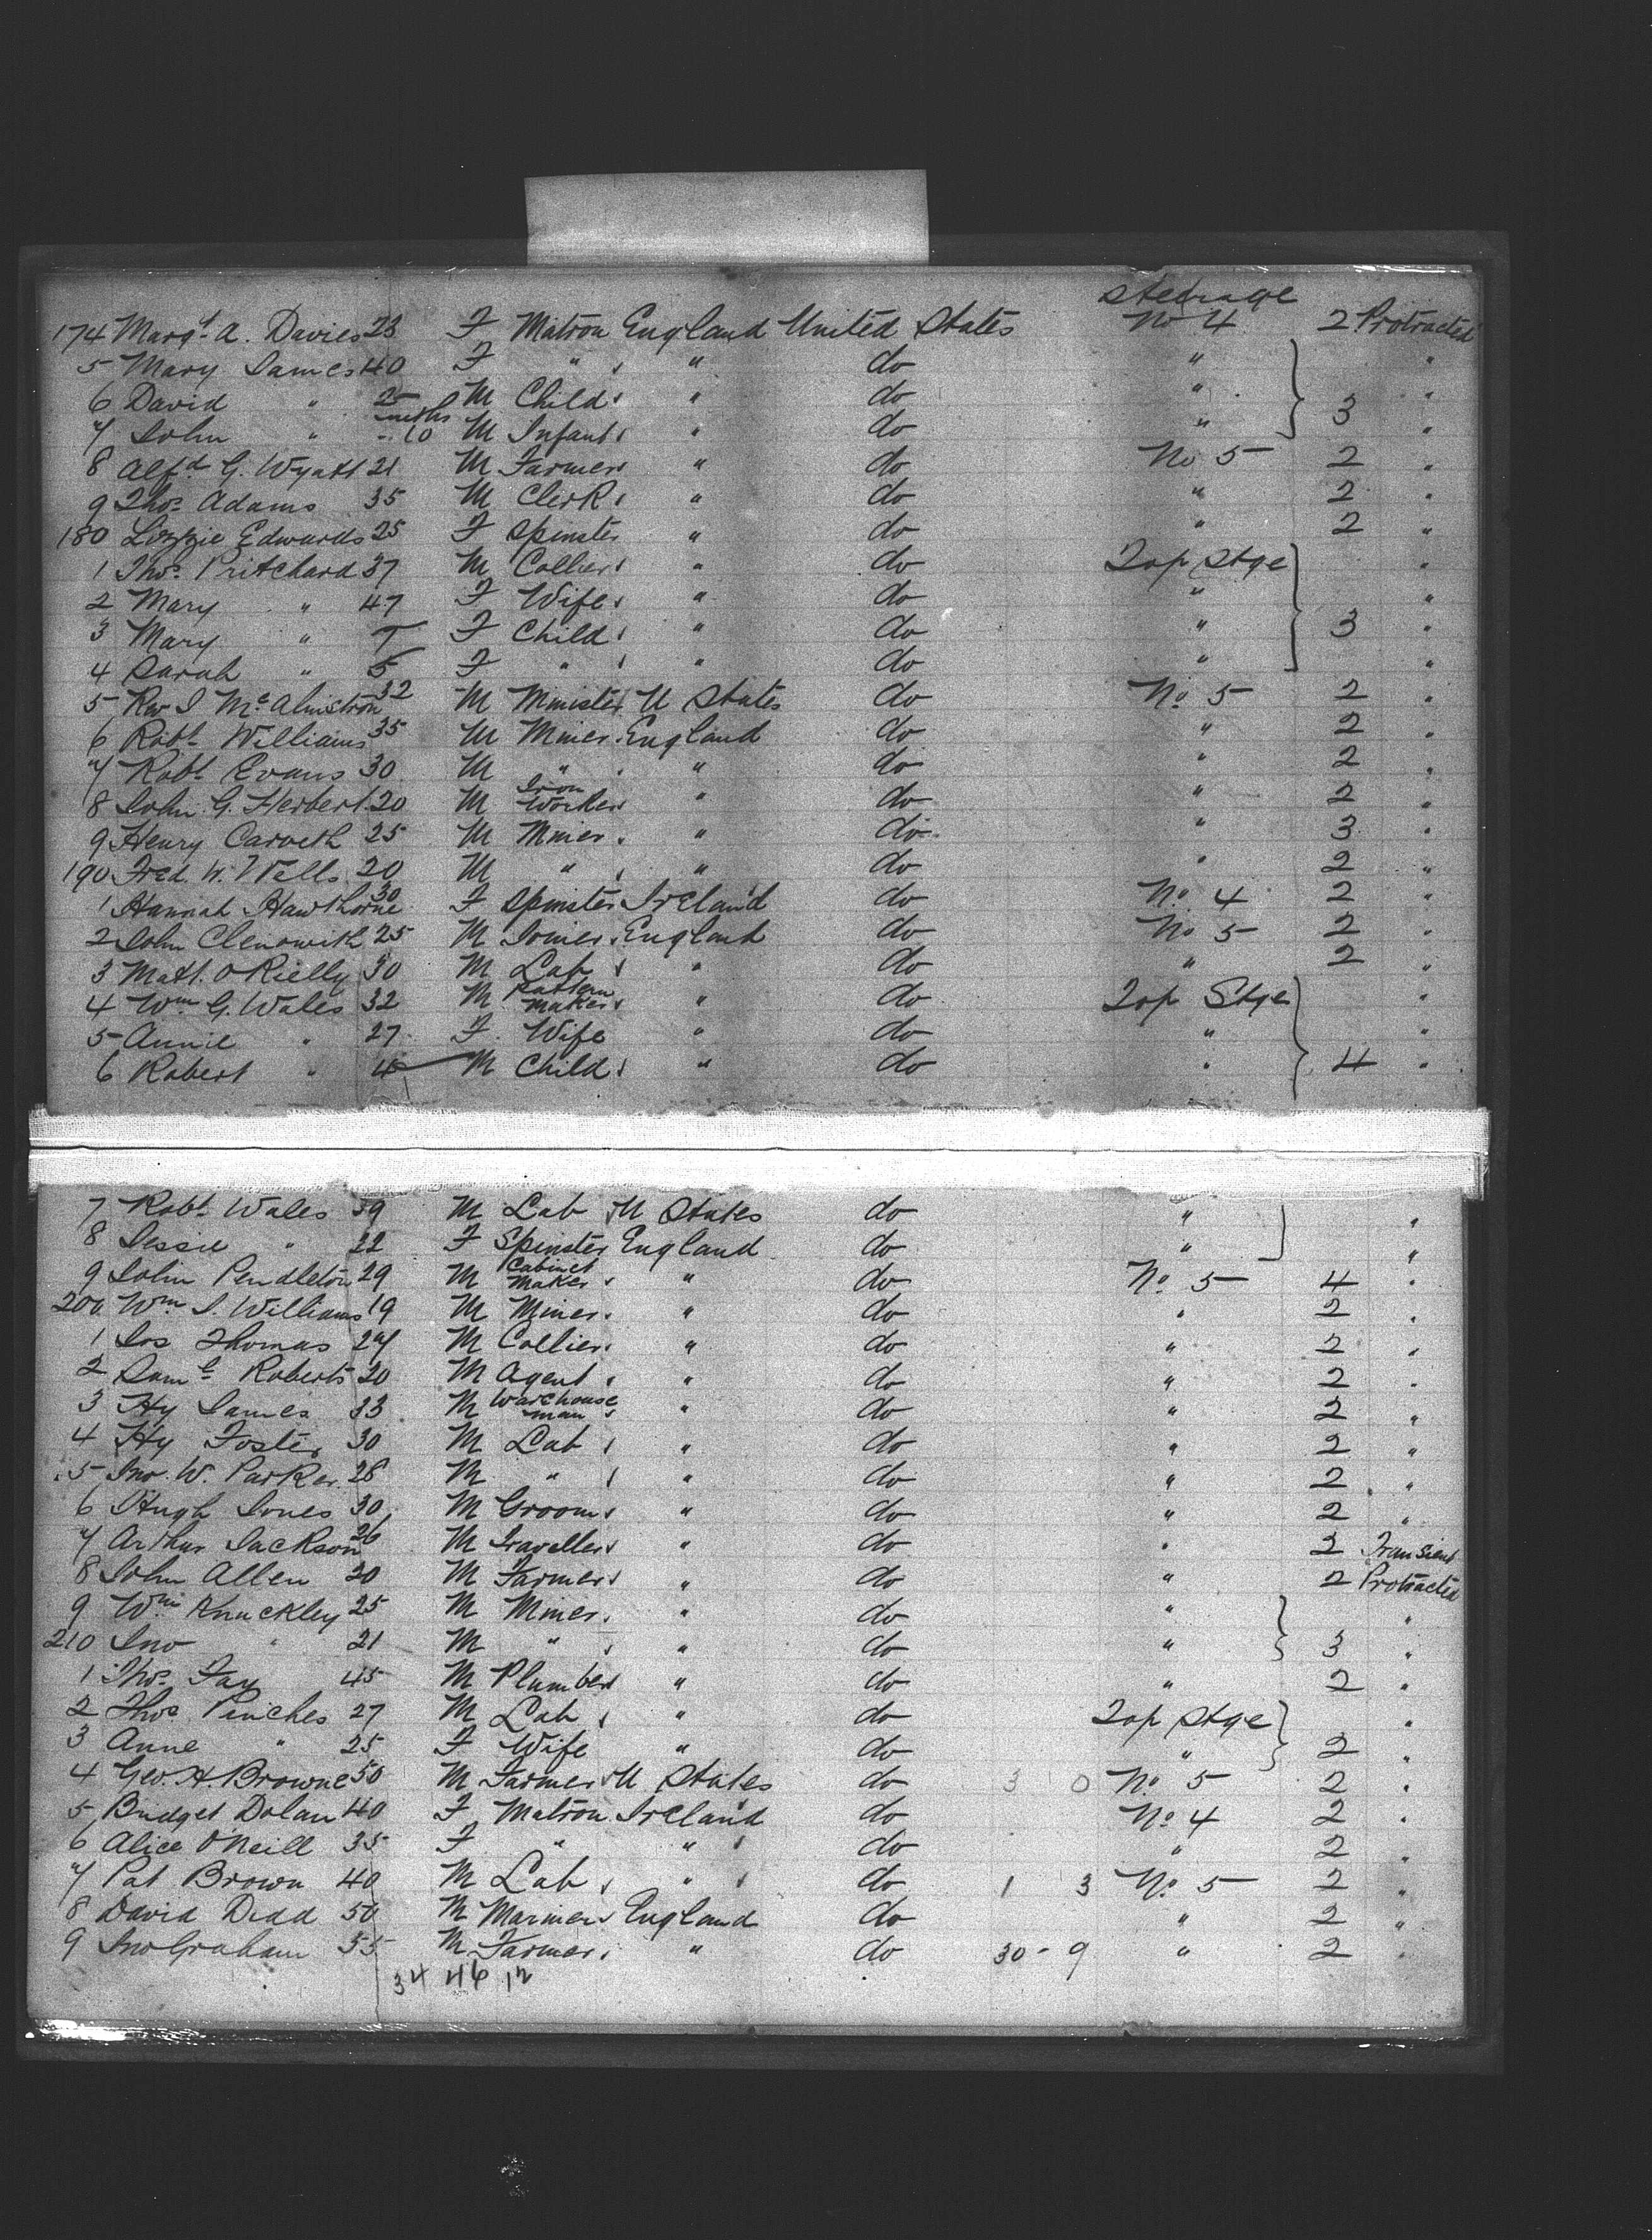 Steerage
174 Margt. A. Davies 28 F Matron England United States No 4 2 Protracted
5 Mary James 40 F " " do " "
6 David " 2 M Child " do " "
7 John " mths 10 M Infant " do " 3 "
8 Alfd. G. Wyatt 21 M Farmer " do No 5 2 "
9 Thos. Adams 35 M Clerk " do " 2 "
180 Lizzie Edwards 25 F Spinster " do " 2 "
1 Thos. Pritchard 37 M Collier " do Top Stge "
2 Mary " 47 F Wife " do " "
3 Mary " 7 F Child " do " 3 "
4 Sarah " 5 F " " do " "
5 Rev J Mc 32 M Minister U States do No. 5 2 "
6 Robt. Williams 35 M Miner England do " 2 "
7 Robt. Evans 30 M " " do " 2 "
8 John G. Herbert 20 M Iron Worker " do " 2 "
9 Henry Carveth 25 M Miner " do " 3 "
190 Fred. W. Wells 20 M " " do " 2 "
1 Hannah Hawthorne 30 F Spinster Ireland do No. 4 2 "
2 John Clenowith 25 M Joiner England do No 5 2 "
3 Matt. O Rielly 30 M Lab " do " 2 "
4 Wm. G. Wales 32 M Pattern Maker " do Top Stge "
5 Annie " 27 F Wife " do " "
6 Robert " 4 M Child " do " 4 "
7 Robt. Wales 59 M Lab U States do " "
8 Jessie " 22 F Spinster England do " "
9 John Pendleton 29 M Cabinet Maker " do No. 5 4 "
200 Wm J. Williams 19 M Miner " do " 2 "
1 Jos Thomas 24 M Collier " do " 2 "
2 Saml. Roberts 20 M Agent " do " 2 "
3 Hy James 33 M Warehouse man " do " 2 "
4 Hy Foster 30 M Lab " do " 2 "
5 Jno. W. Parker 28 M " " do " 2 "
6 Hugh Jones 30 M Groom " do " 2 "
7 Arthur Jackson 26 M Traveller " do " 2 Transient
8 John Allen 20 M Farmer " do " 2 Protracted
9 Wm Knuckley 25 M Miner " do " "
210 Jno " 21 M " " do " 3 "
1 Thos. Fay 45 M Plumber " do " 2 "
2 Thos. Pinches 27 M Lab " do Top Stge "
3 Anne " 25 F Wife " do " 2 "
4 Geo. H. Browne 50 M Farmer U States do 3 0 No. 5 2 "
5 Bridget Dolan 40 F Matron Ireland do No. 4 2 "
6 Alice O'Neill 35 F " " do " 2 "
7 Pat Brown 40 M Lab " do 1 3 No. 5 2 "
8 David Dodd 50 M Mariner England do " 2 "
9 Jno Graham 55 M Farmer " do 30 - 9 " 2 "
34 46 12